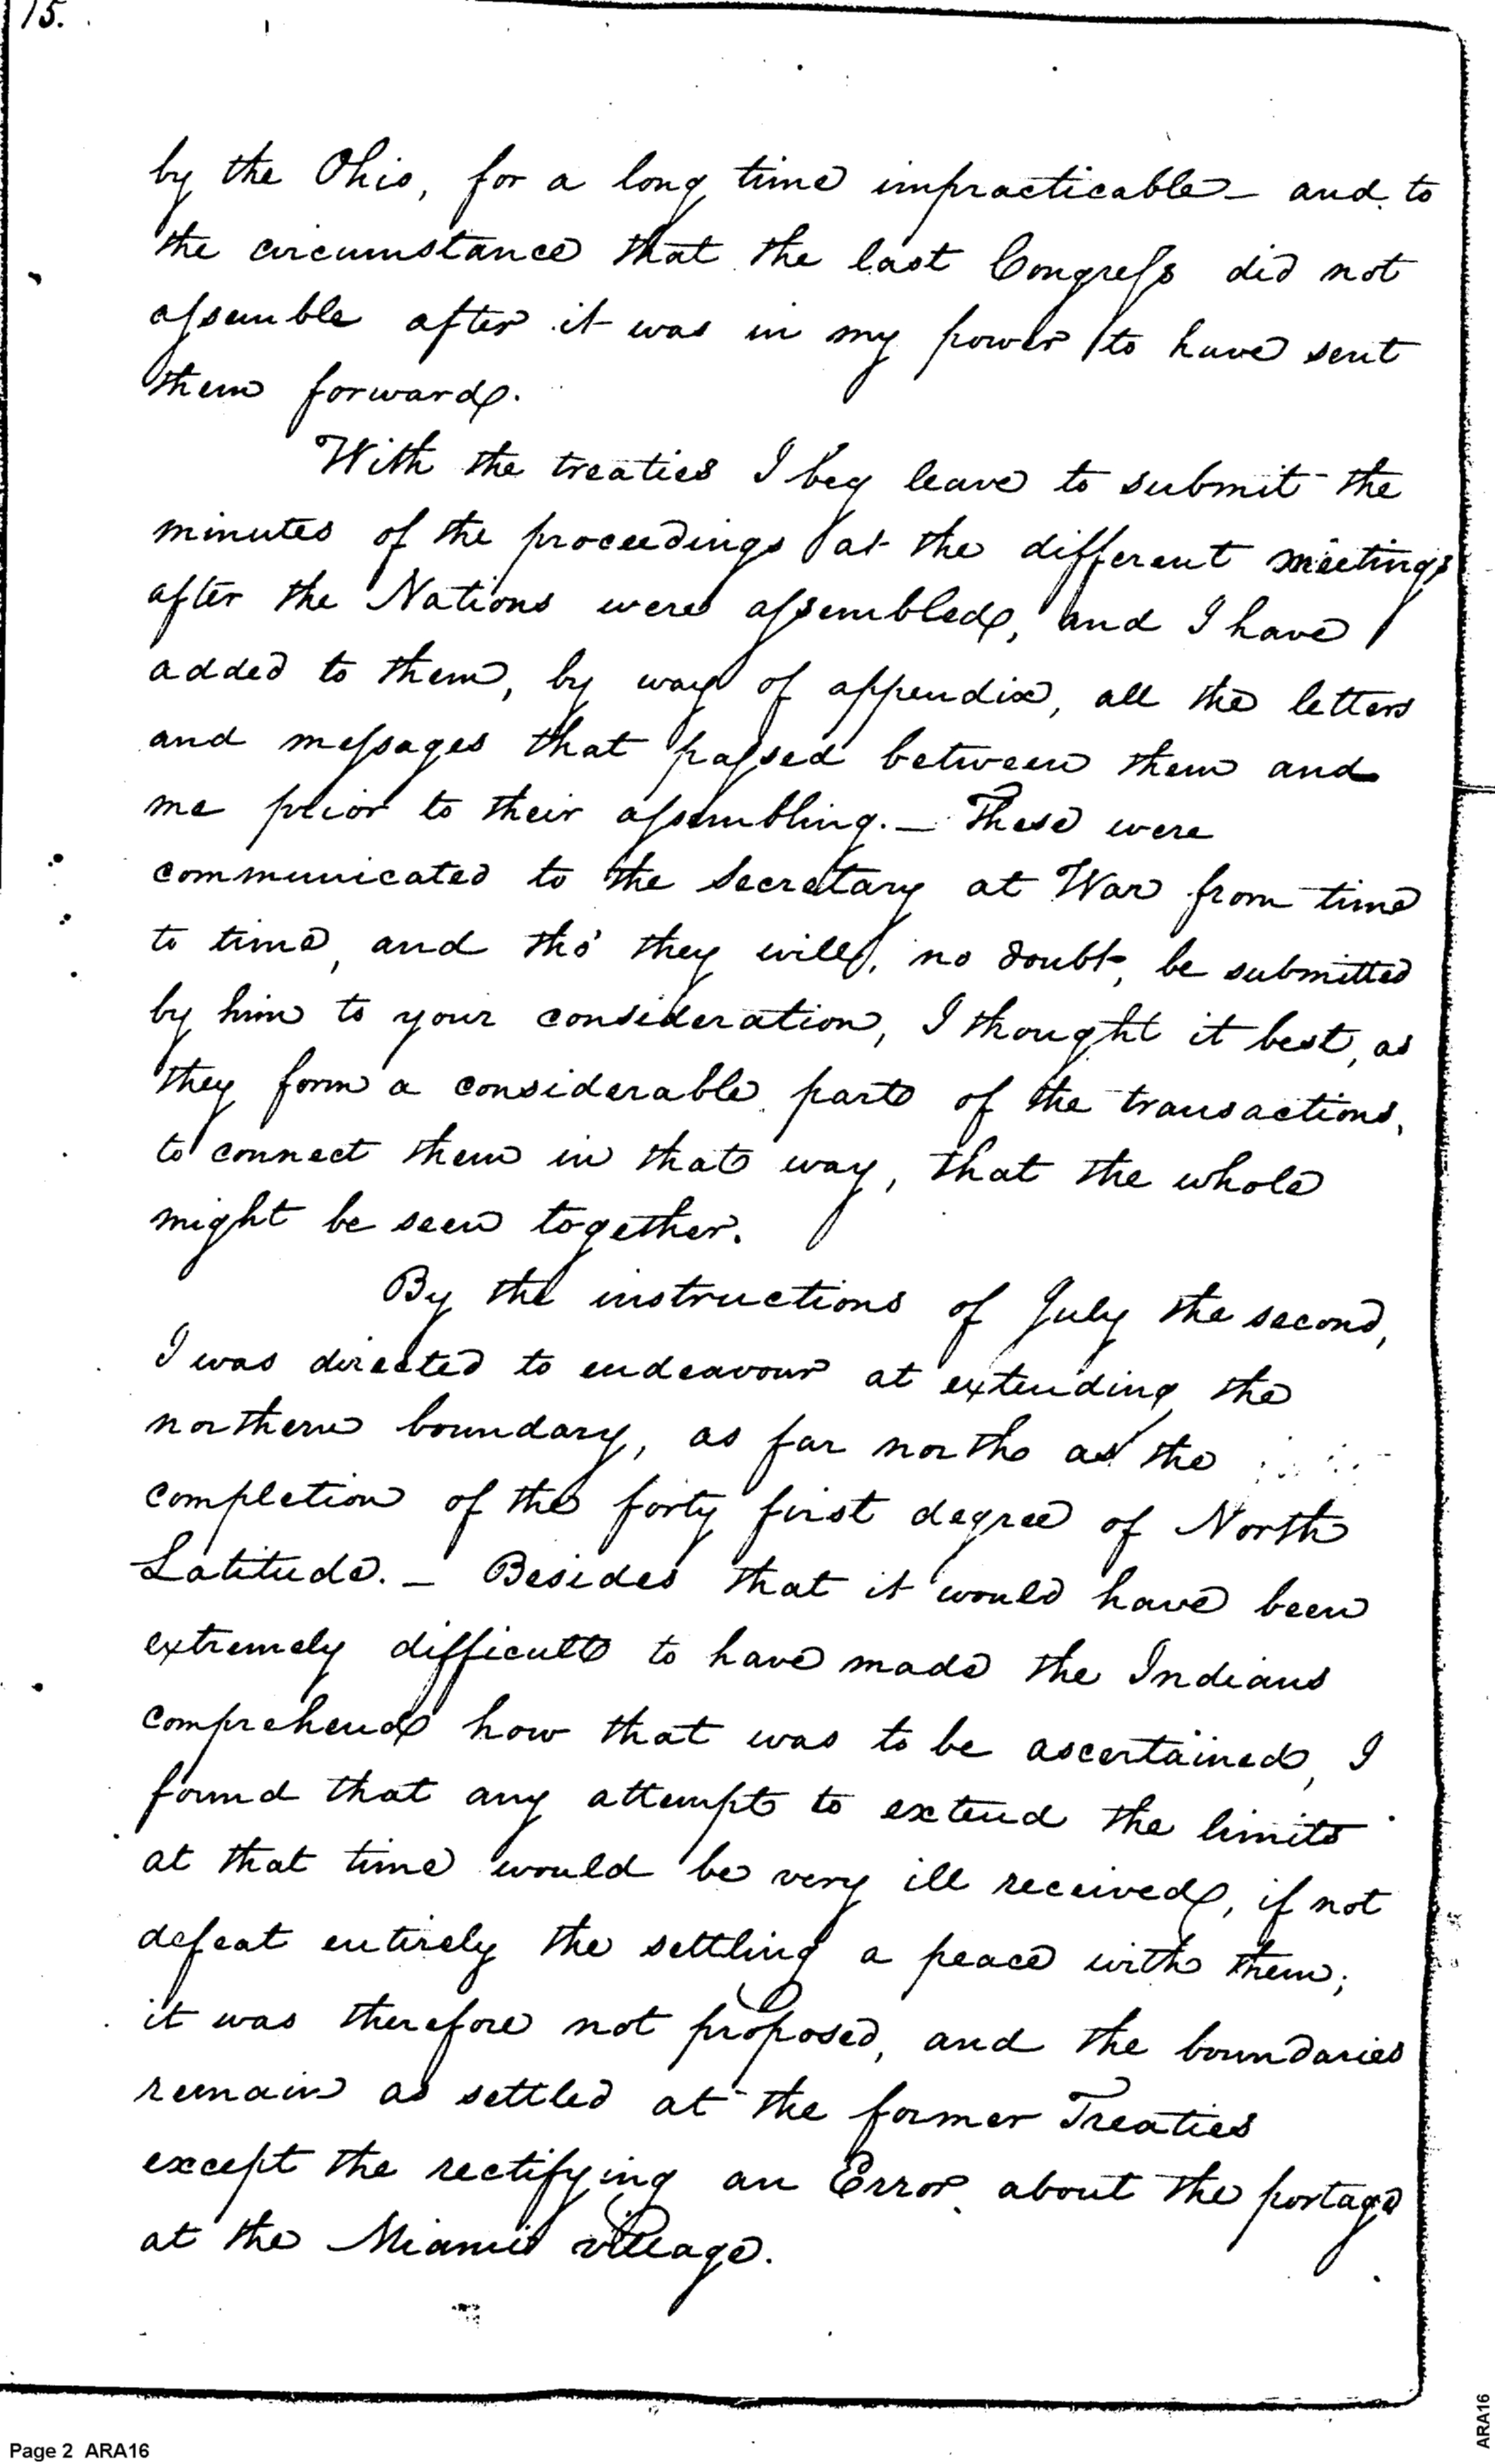 15.
by the Ohio, for a long time impracticable – and to
the circumstance that the last Congress did not
assemble after it was in my power to have sent
them forward.
With the treaties I beg leave to submit the
minutes of the proceedings at the different meetings
after the Nations were assembled, and I have
added to them, by way of appendix, all the letters
and messages that passed between them and
me prior to their assembling. – These were
communicated to the Secretary at War from time
to time, and tho' they will, no doubt, be submitted
by him to your consideration, I thought it best, as
they form a considerable part of the transactions,
to connect them in that way, that the whole
might be seen together.
By the instructions of July the second,
I was directed to endeavour at extending the
northern boundary, as far north as the
completion of the forty first degree of North
Latitude. – Besides that it would have been
extremely difficult to have made the Indians
comprehend how that was to be ascertained, I
found that any attempt to extend the limits
at that time would be very ill received, if not
defeat entirely the settling a peace with them;
it was therefore not proposed, and the boundaries
remain as settled at the former Treaties
except the rectifying an Error about the portage
at the Miamis village.
Page 2 ARA16
ARA16